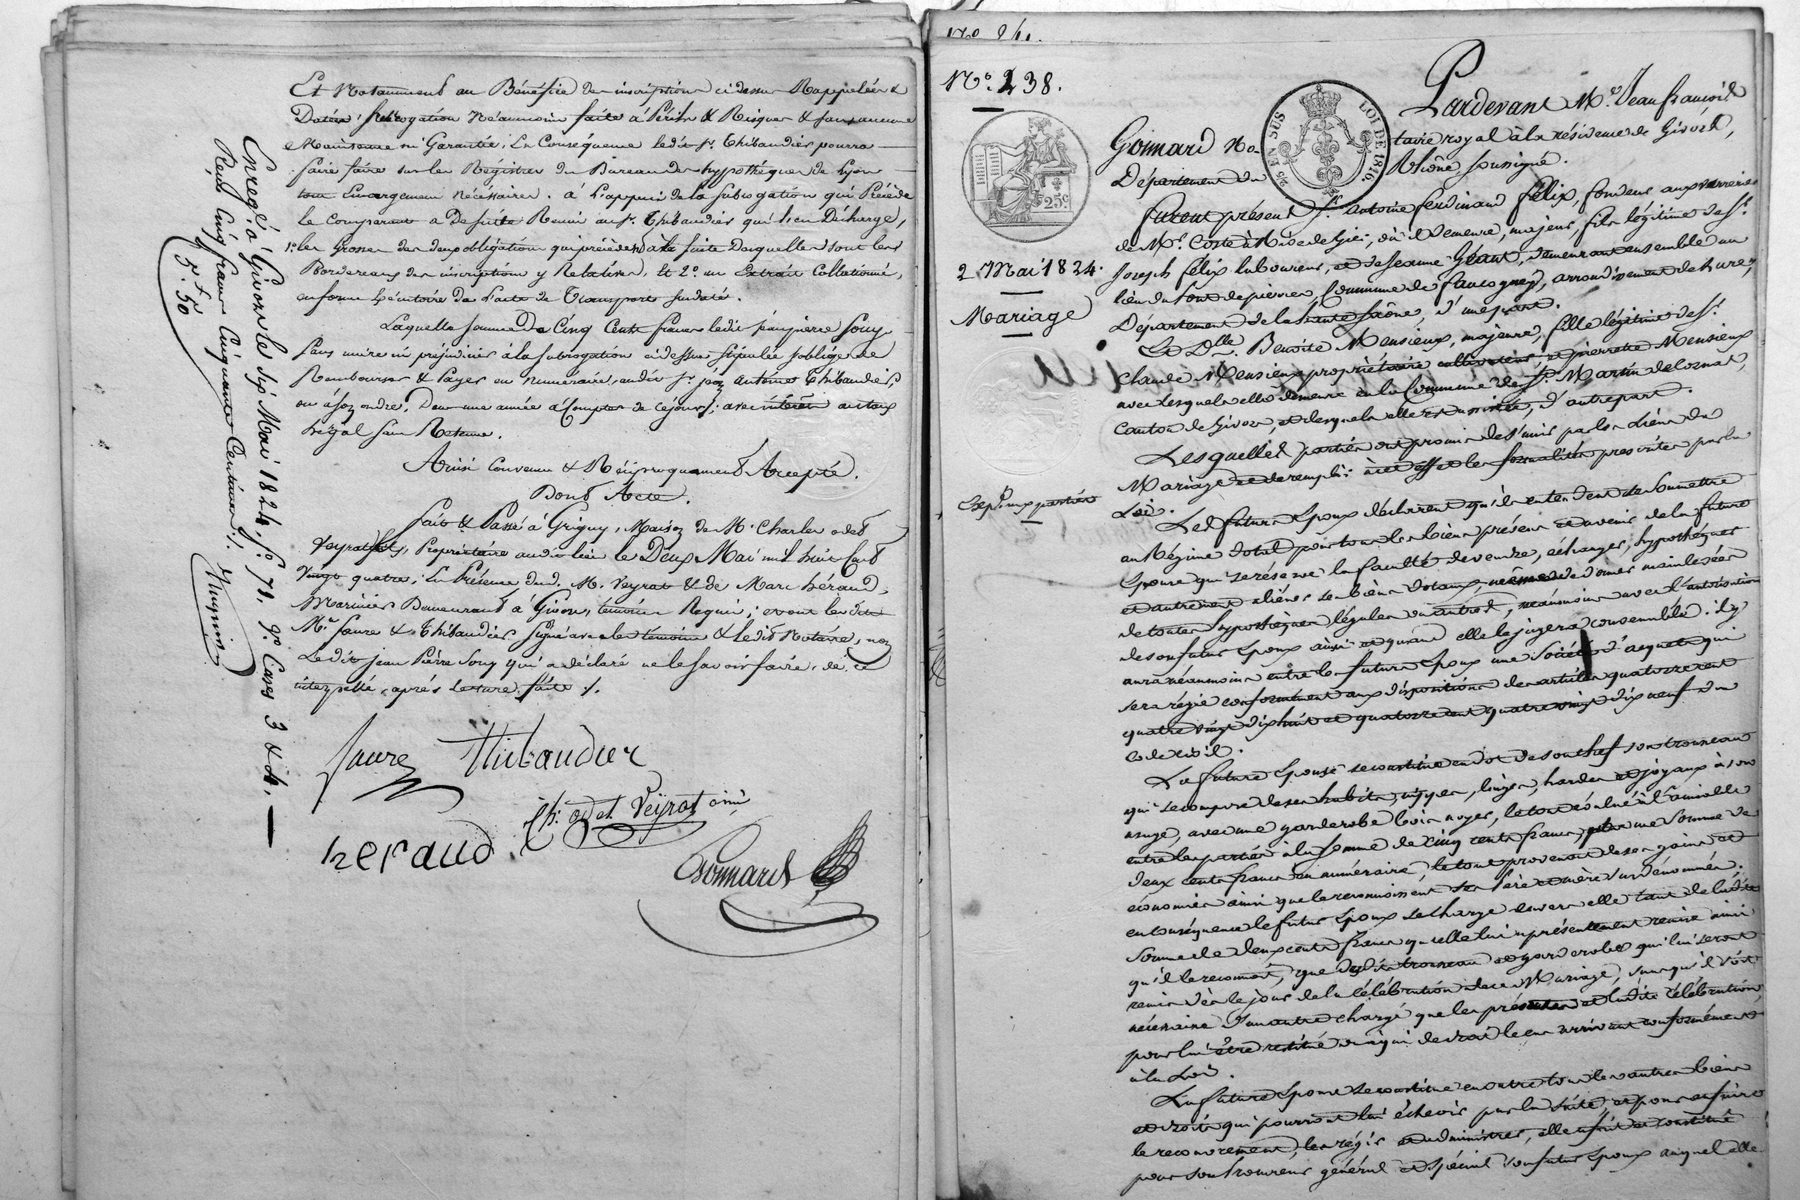 Et Notamment au Bénéfice des inscriptions ci dessus Rappelées &
Datées; Subrogation Néanmoins faite à Périls & Risques & sans aucune
Maintenue ni Garantie; En Conséquence ledit Sr. Thibaudier pourra
faire faire sur les Régistres du Bureau des hypothèques de Lyon
tout Emargement Nécessaire. à l'appui de la Subrogation qui Précéde
le Comparant a De suite Remis au sr. Thibaudier qui l'en Décharge,
1°. les Grosses des deux obligations qui précédent à la suite desquelles sont les
Bordereaux des inscriptions y Relatives, Et 2°. un Extrait Collationné,
en forme Exécutoire de l'acte de Transport susdaté.
Laquelle somme De Cinq Cents francs ledit jean pierre Souy
sans nuire ni préjudicier à la subrogation ci dessus stipulée s'oblige de
Rembourser & Payer en numéraire, audit sr. jean antoine Thibaudier,
ou à son ordre, Dans une année à Compter de ce jour; avec intérêts au taux
légal sans Retenue.
Ainsi Convenu & Réciproquement Accepté.
Dont Acte.
fait & Passé à Grigny, Maison de Mr. Charles odet
Veyrat fils, Propriétaire audit lieu le Deux Mai mil huit Cent
vingt quatre; En Présence dud. M. Veyrat & de Marc héraud,
Marinier Demeurant à Givors, témoins Requis; & ont lesdits
Mrs. faure & Thibaudier signé avec les témoins & ledit Notaire, non
Ledit jean Pierre Souy qui a déclaré ne le savoir faire, de ce
interpellé, après lecture faite ./.
faure Thibaudier
Ch. odet Veÿrat ainé
heraud
Gonnard
Enregé. à Givors le six Mai 1824, f°. 71. V°. Cases 3 & 4.
Reçu Cinq francs Cinquante Centimes ./.
5 f. 50
N°. 238.
25 EN SUS
LOI DE 1816.
25c
2 Mai 1824.
Mariage
Exp.on aux parties
Pardevant Me. Jean françois
Gonnard Notaire royal à la résidence de Givors,
Département du Rhône soussigné.
furent présent Sr. Antoine ferdinand félix, fondeur aux verreries
de Mr. Coste à Rive de Gier, où il demeure, majeur, fils légitime de Sr.
Joseph félix laboureur, et de Jeanne Géant, demeurant ensemble au
lieu du font de pierre, Commune de faucogney, arrondissement de Lure,
Département de la haute Saône, d'une part.
Et Dlle. Benoite Mensieux, majeure, fille légitime de Sr.
Claude Mensieux propriétaire cultivateur et pierrette Mensieux
avec lesquels elle demeure en la Commune de St. Martin de Cornas,
Canton de Givors, et desquels elle est assistée, d'autre part.
Lesquelles parties ont promis de s'unir par les liens du
Mariage et de remplir à cet effet les formalités prescrites par la
Loi.
Les futurs Epoux déclarent qu'ils entendent se soumettre
au Régime dotal pour tous les biens présens et avenir de la future
Epouse qui se réserve la faculté de vendre, échanger, hypothéquer
et autrement aliéner ses biens dotaux, même de donner mainlevée
de toutes hypothèques légales ou autres, néanmoins avec l'autorisation
de son futur Epoux ainsi et quand elle le jugera convenable: il y
aura néanmoins entre les futurs Epoux une Société d'acquets qui
sera régie conformément aux dispositions des articles quatorze cent
quatre vingt dix huit et quatorze cent quatre vingt dix neuf du
Code civil.
La future Epouse se constitue en dot de son chef son trousseau
qui se compose de ses habits, nippes, linges, hardes et joyaux à son
usage, avec une garderobe bois noyer, le tout évalué à l'amiable
entre les parties à la Somme de cinq cents francs, plus une Somme de
deux cents francs en numéraire, le tout provenant de ses gains et
économies ainsi que le reconnoissent ses père et mère susdénommés:
en conséquence le futur Epoux se charge envers elle tant de ladite
Somme de deux cents francs qu'elle lui a présentement remise ainsi
qu'il le reconnoit, que dudit trousseau et garderobes qui lui seront
remis dès le jour de la célébration de ce Mariage, sans qu'il soit
nécessaire d'un autre chargé que les présentes et ladite célébration,
pour lui être restitué ou à qui de droit le cas arrivant conformément
à la Loi.
La future Epouse se constitue en outre tous les autres biens
et droits qui pourront lui échevir par la suite et pour en faire
le recouvrement, les régir et administrer, elle a fait et constitué
pour son Procureur général et spécial son futur Epoux auquel elle